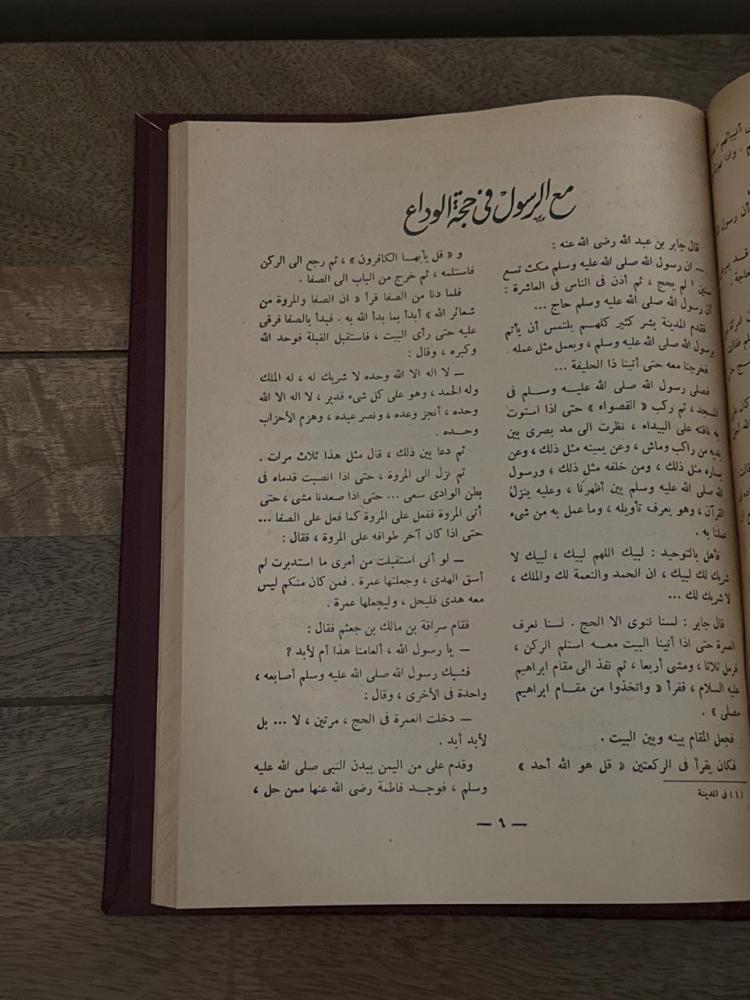 مع الرسول في حجة الوداع
قال جابر بن عبد الله رضى الله عنه :
— ان رسول الله صلى الله عليه وسلم مكث تسع
سنين ١ لم يحج ، ثم أذن فى الناس فى العاشرة :
ان رسول الله صلى الله عليه وسلم حاج ...
فقدم المدينة بشر كثير كلهم يلتمس أن يأتم
برسول الله صلى الله عليه وسلم ، ويعمل مثل عمله
فخرجنا معه حتى أتينا ذا الحليفة ...
فصلى رسول الله صلى الله عليه وسلم فى
المسجد ، ثم ركب « القصواء » حتى اذا استوت
به ناقته على البيداء ، نظرت الى مد بصرى بين
يديه من راكب وماش ، وعن يمينه مثل ذلك ، وعن
يساره مثل ذلك ، ومن خلفه مثل ذلك ، ورسول
الله صلى الله عليه وسلم بين أظهرنا ، وعليه ينزل
القرآن ، وهو يعرف تأويله ، وما عمل به من شىء
عملنا به .
فأهل بالتوحيد : لبيك اللهم لبيك ، لبيك لا
شريك لك لبيك ، ان الحمد والنعمة لك والملك ،
لا شريك لك ...
قال جابر : لسنا ننوى الا الحج . لسنا نعرف
العمرة حتى اذا أتينا البيت معه استلم الركن ،
فرمل ثلاثا ، ومشى أربعا ، ثم نفذ الى مقام ابراهيم
عليه السلام ، فقرأ « واتخذوا من مقام ابراهيم
مصلى » .
فجعل المقام بينه وبين البيت .
فكان يقرأ فى الركعتين « قل هو الله أحد »
(١) فى المدينة
و « قل يأيها الكافرون » ، ثم رجع الى الركن
فاستلمه ، ثم خرج من الباب الى الصفا .
فلما دنا من الصفا قرأ « ان الصفا والمروة من
شعائر الله » أبدأ بما بدأ الله به . فبدأ بالصفا فرقى
عليه حتى رأى البيت ، فاستقبل القبلة فوحد الله
وكبره ، وقال :
— لا اله الا الله وحده لا شريك له ، له الملك
وله الحمد ، وهو على كل شىء قدير ، لا اله الا الله
وحده ، أنجز وعده ، ونصر عبده ، وهزم الأحزاب
وحده .
ثم دعا بين ذلك ، قال مثل هذا ثلاث مرات .
ثم نزل الى المروة ، حتى اذا انصبت قدماه فى
بطن الوادى سعى ... حتى اذا صعدنا مشى ، حتى
أتى المروة ففعل على المروة كما فعل على الصفا ...
حتى اذا كان آخر طوافه على المروة ، فقال :
— لو أنى استقبلت من أمرى ما استدبرت لم
أسق الهدى ، وجعلتها عمرة . فمن كان منكم ليس
معه هدى فليحل ، وليجعلها عمرة .
فقام سراقة بن مالك بن جعثم فقال :
— يا رسول الله ، ألعامنا هذا أم لأبد ؟
فشبك رسول الله صلى الله عليه وسلم أصابعه ،
واحدة فى الأخرى ، وقال :
— دخلت العمرة فى الحج ، مرتين ، لا ... بل
لأبد أبد .
وقدم على من اليمن ببدن النبى صلى الله عليه
وسلم ، فوجد فاطمة رضى الله عنها ممن حل ،
— ٩ —